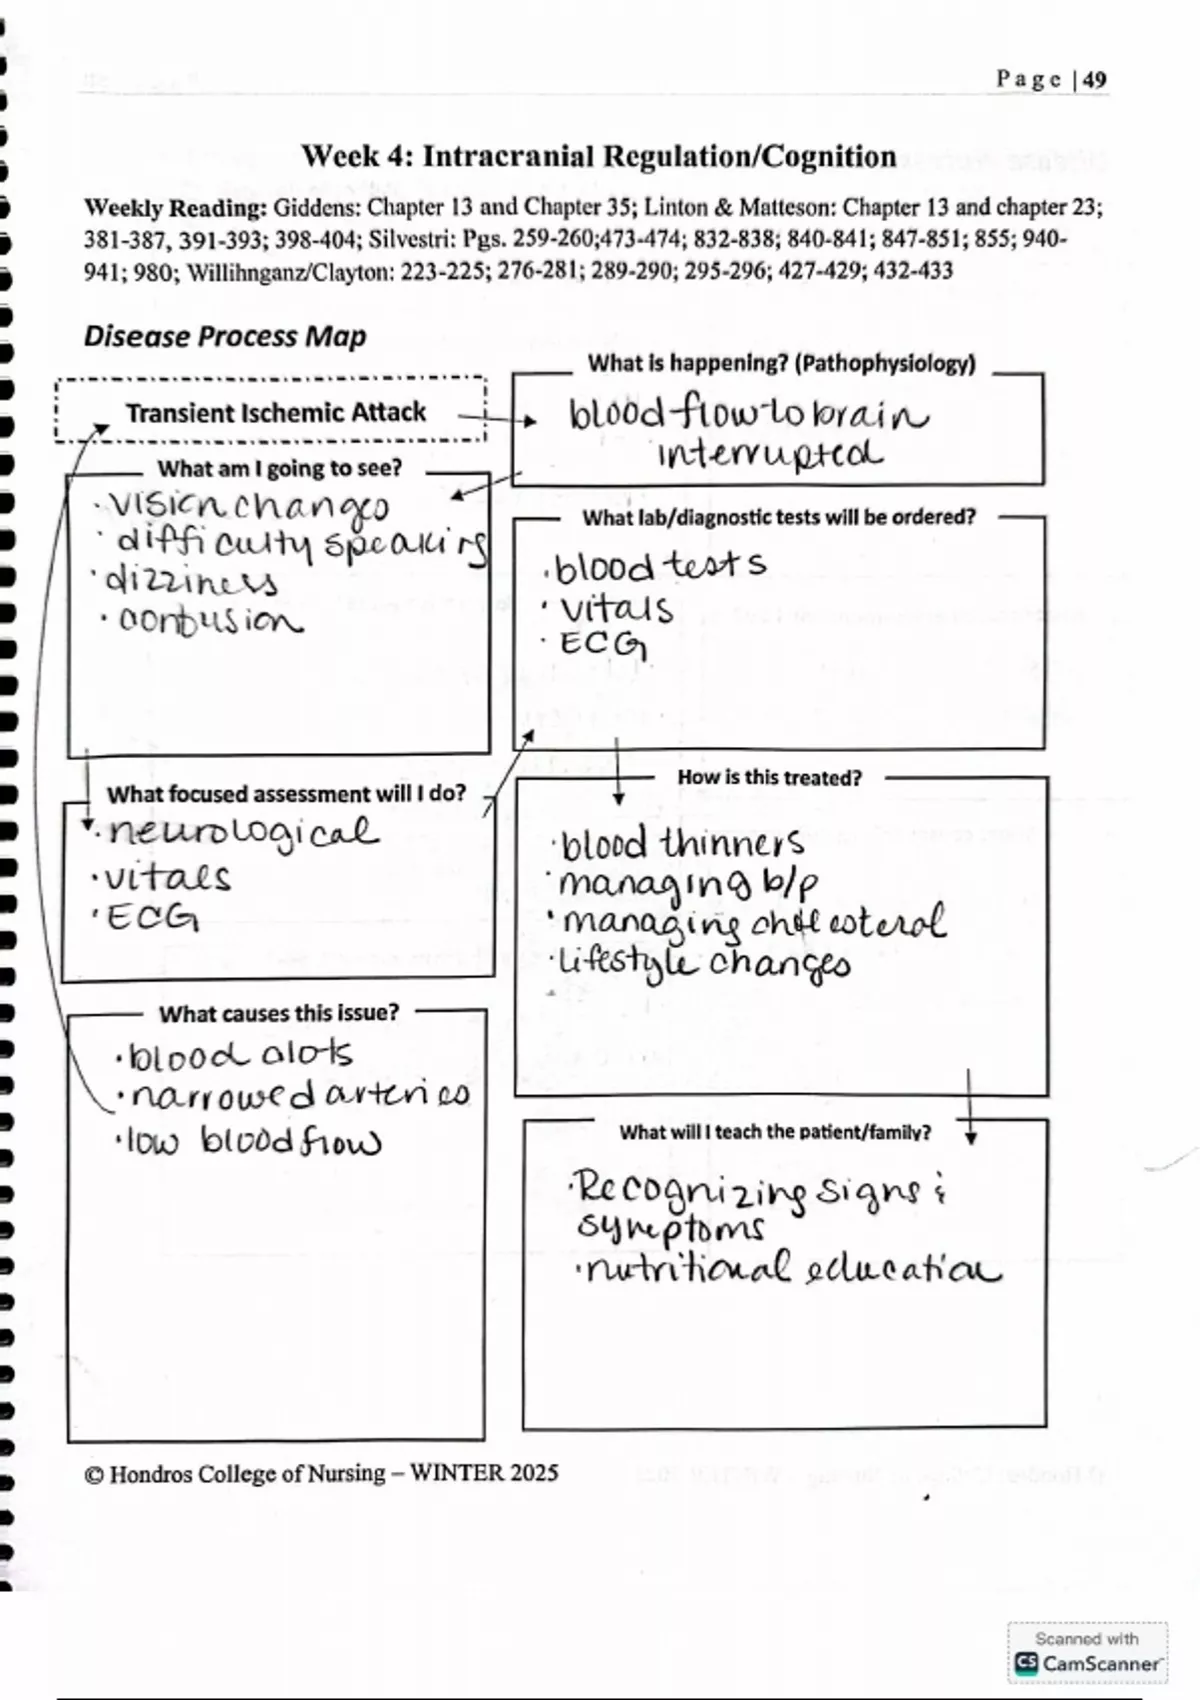 Page | 49
Week 4: Intracranial Regulation/Cognition
Weekly Reading: Giddens: Chapter 13 and Chapter 35; Linton & Matteson: Chapter 13 and chapter 23;
381-387, 391-393; 398-404; Silvestri: Pgs. 259-260;473-474; 832-838; 840-841; 847-851; 855; 940-
941; 980; Willihnganz/Clayton: 223-225; 276-281; 289-290; 295-296; 427-429; 432-433
Disease Process Map
Transient Ischemic Attack
What is happening? (Pathophysiology)
blood flow to brain
interrupted
What am I going to see?
· vision changes
· difficulty speaking
· dizziness
· confusion
What lab/diagnostic tests will be ordered?
· blood tests
· vitals
· ECG
What focused assessment will I do?
· neurological
· vitals
· ECG
How is this treated?
· blood thinners
· managing b/p
· managing cholesterol
· lifestyle changes
What causes this issue?
· blood clots
· narrowed arteries
· low blood flow
What will I teach the patient/family?
· Recognizing signs &
symptoms
· nutritional education
© Hondros College of Nursing – WINTER 2025
Scanned with
CS CamScanner